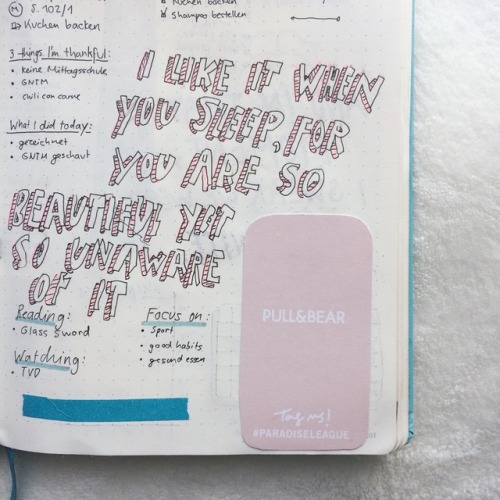 M S. 102/1
Kuchen backen
Kuchen backen
Shampoo bestellen
3 things I'm thankful:
• keine Mittagsschule
• GNTM
• chili con carne
What I did today:
• gezeichnet
• GNTM geschaut
I LIKE IT WHEN
YOU SLEEP, FOR
YOU ARE SO
BEAUTIFUL YET
SO UNAWARE
OF IT
Reading:
• Glass Sword
Watching:
• TVD
Focus on:
• Sport
• good habits
• gesund essen
PULL&BEAR
Tag us!
#PARADISELEAGUE